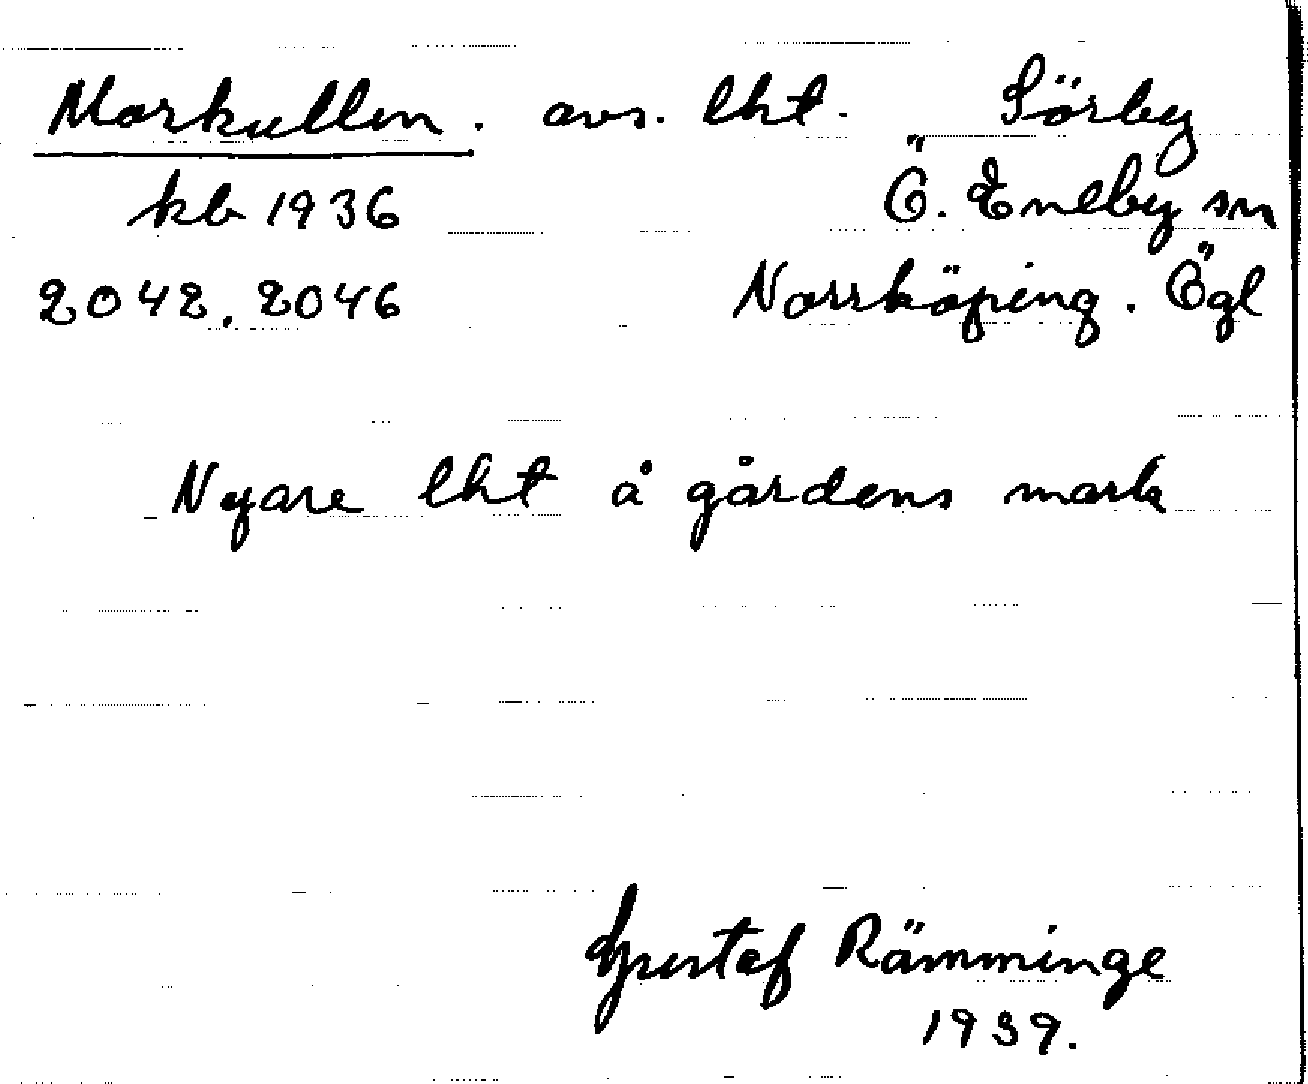 Morkullen. avs. lht. Sörby
kb 1936 Ö. Eneby sn
2042, 2046 Norrköping. Ögl
Nyare lht å gårdens mark
Gustaf Rämminge
1939.